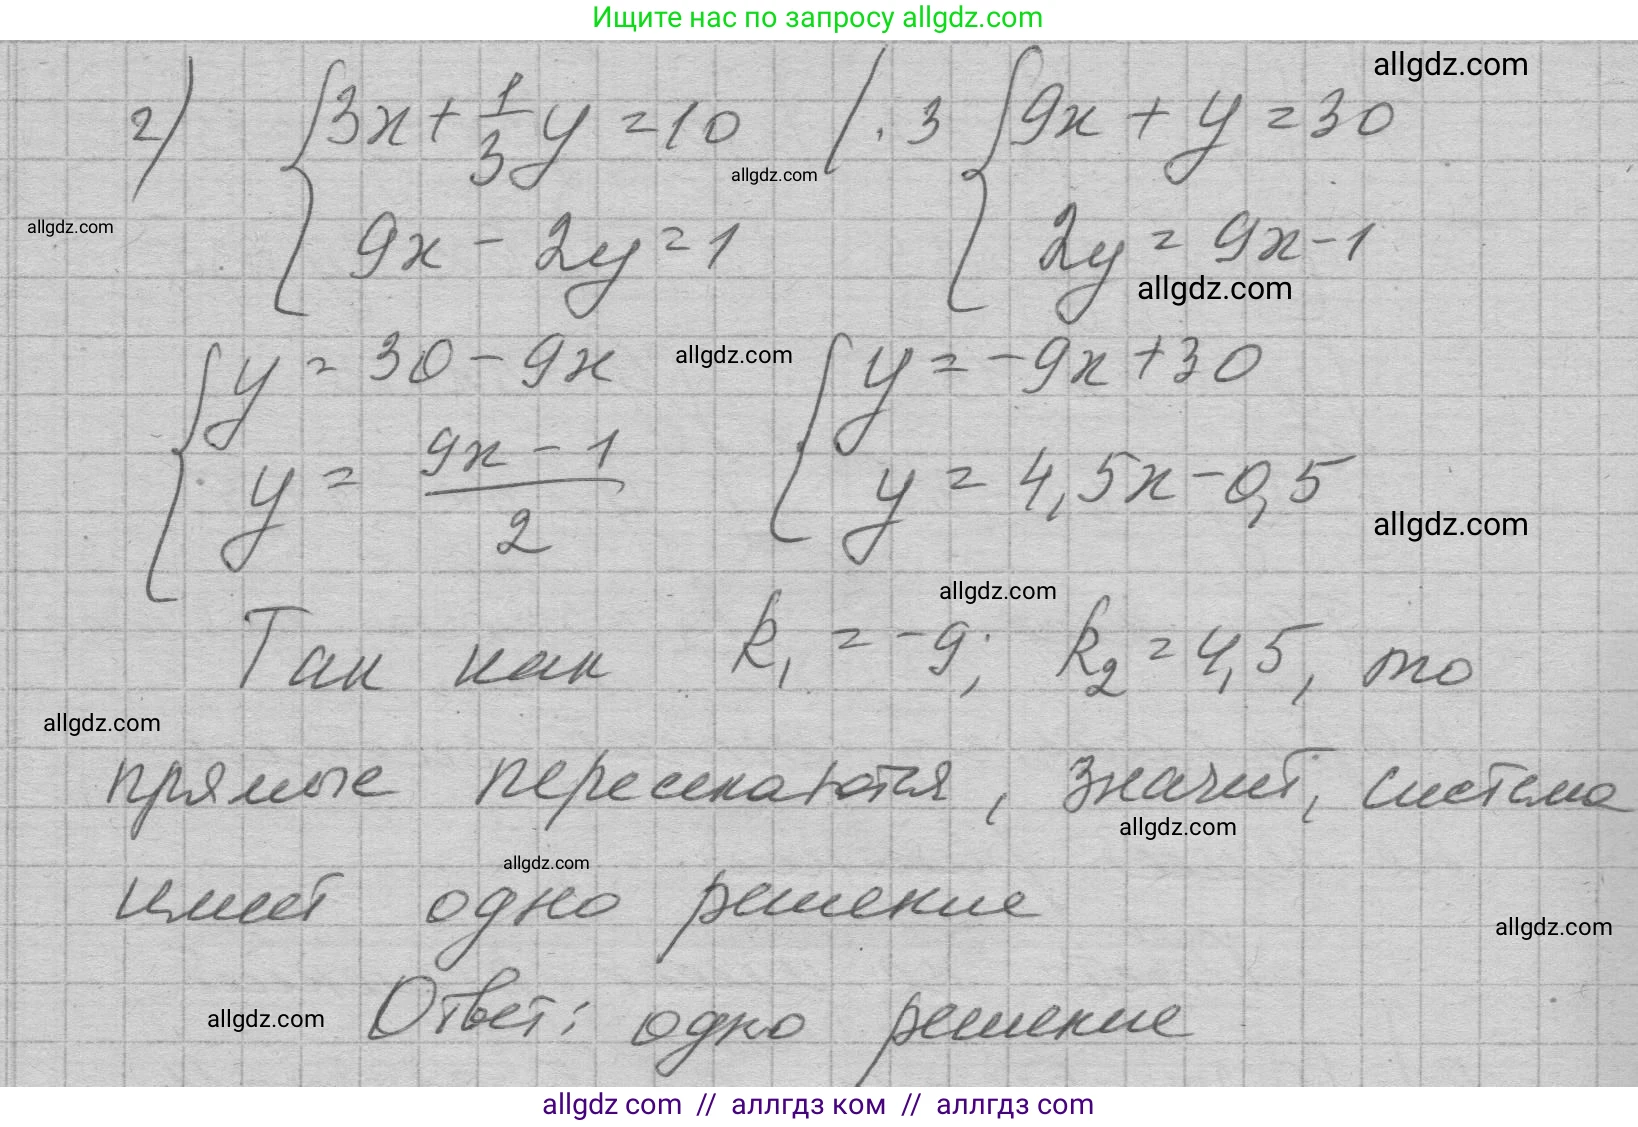 Ищите нас по запросу allgdz.com
allgdz.com
г) { 3x + 1/3 y = 10 / · 3 { 9x + y = 30
allgdz.com
allgdz.com
9x - 2y = 1 2y = 9x - 1
allgdz.com
{ y = 30 - 9x allgdz.com { y = -9x + 30
y = (9x - 1)/2 y = 4,5x - 0,5
allgdz.com
allgdz.com
Так как k₁ = -9; k₂ = 4,5, то
allgdz.com
прямые пересекаются, значит, система
allgdz.com
allgdz.com
имеет одно решение
allgdz.com
allgdz.com Ответ: одно решение
allgdz com // аллгдз ком // аллгдз com